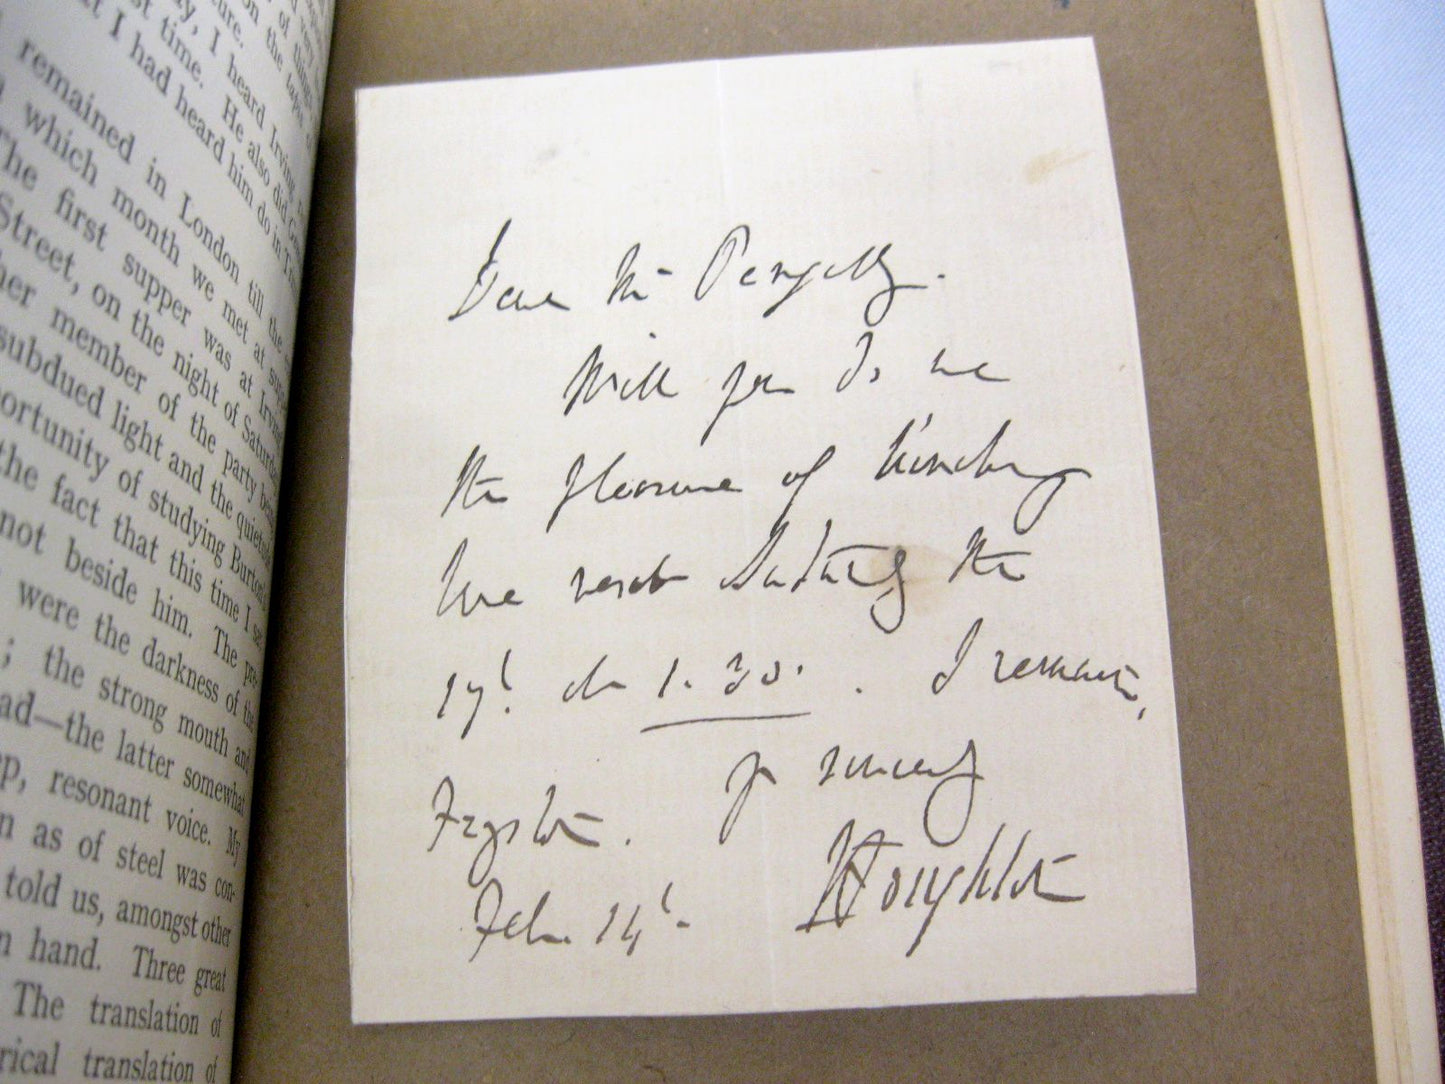 ture. on the tapis
y, I heard Irving
st time. He also did
f I had heard him do in
remained in London till the
which month we met at
The first supper was at Irving
Street, on the night of Saturday
her member of the party
subdued light and the
ortunity of studying Burton
the fact that this time I
not beside him. The
were the darkness of the
; the strong mouth and
ad—the latter somewhat
ep, resonant voice. My
n as of steel was con-
told us, amongst other
n hand. Three great
The translation of
rical translation of
Dear Mr Pengelly.
Will you do me
the pleasure of lunching
here next Saturday the
17t at 1.30. . I remain,
yr sincerely
Fryston.
Houghton
Feb. 14t